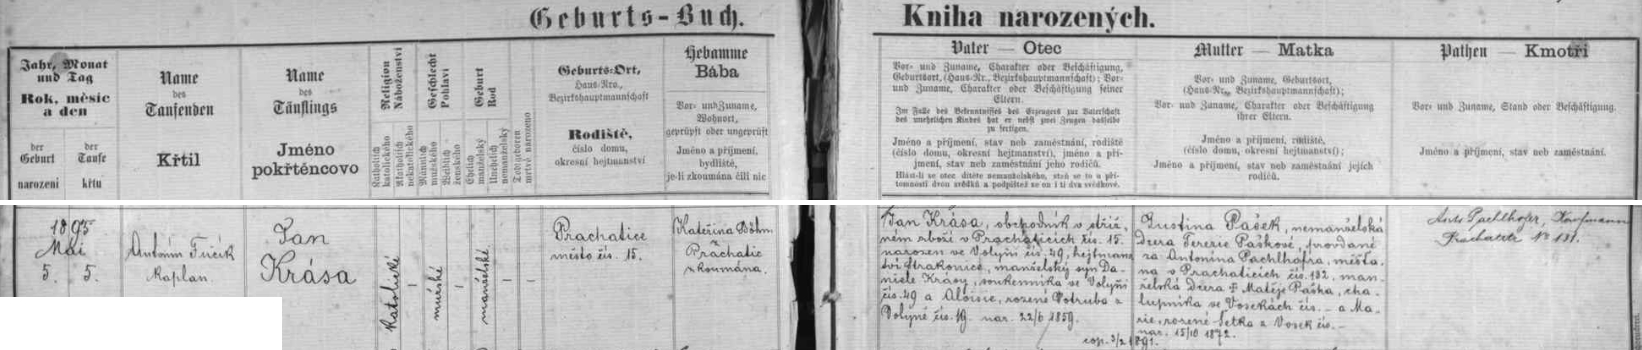 Geburts-Buch.
Kniha narozených.
Jahr, Monat
und Tag
Rok, měsíc
a den
der
Geburt
narození
der
Taufe
křtu
Name
des
Taufenden
Křtil
Name
des
Täuflings
Jméno
pokřtěncovo
Religion
Náboženství
Katholisch
katolického
Akatholisch
nekatolického
Geschlecht
Pohlaví
Männlich
mužského
Weiblich
ženského
Geburt
Rod
Ehelich
manželský
Unehelich
nemanželský
Todtgeboren
mrtvě narozeno
Geburts-Ort,
Haus-Nro.,
Bezirkshauptmannschaft
Rodiště,
číslo domu,
okresní hejtmanství
Hebamme
Bába
Vor- und Zuname,
Wohnort,
geprüft oder ungeprüft
Jméno a příjmení,
bydliště,
je-li zkoumána čili nic
Vater — Otec
Vor- und Zuname, Charakter oder Beschäftigung,
Geburtsort, (Haus-Nr., Bezirkshauptmannschaft); Vor-
und Zuname, Charakter oder Beschäftigung seiner
Eltern.
Im Falle des Bekenntnisses des Erzeugers zur Vaterschaft
des unehelichen Kindes hat er nebst zwei Zeugen dasselbe
zu fertigen.
Jméno a příjmení, stav neb zaměstnání, rodiště
(číslo domu, okresní hejtmanství), jméno a pří-
jmení, stav neb zaměstnání jeho rodičů.
Hlásí-li se otec dítěte nemanželského, stůj se to u pří-
tomnosti dvou svědků a podpištež se on i ti dva svědkové.
Mutter — Matka
Vor- und Zuname, Geburtsort,
(Haus-Nr., Bezirkshauptmannschaft);
Vor- und Zuname, Charakter oder Beschäftigung
ihrer Eltern.
Jméno a příjmení, rodiště,
(číslo domu, okresní hejtmanství);
Jméno a příjmení, stav neb zaměstnání jejích
rodičů.
Pathen — Kmotři
Vor- und Zuname, Stand oder Beschäftigung.
Jméno a příjmení, stav neb zaměstnání.
1895
Mai
5. 5.
Antonín
kaplan.
Jan
Krása
katolické
mužské
manželské
Prachatice
město čís. 15.
Kateřina Böhm
z
Prachatic
zkoumána.
Jan Krása, obchodník v střiž-
ném zboží v Prachaticích čís. 15.
narozen ve Volyni čís. 49, hejtman-
ství Strakonice, manželský syn Da-
niele Krásy, soukenníka ve Volyni
čís. 49 a Aloisie, rozené Potruba z
Volyně čís. 19. nar. 22/6 1859.
cop. 3/2 1891.
Justina Pášek, nemanželská
dcera Terezie Páškové, provdané
za Antonína Pachlhofra, měšťa-
na v Prachaticích čís. 132, man-
želská dcera † Matěje Páška, cha-
lupníka ve Vosekách čís. – a Ma-
rie, rozené Šetka z Vosek čís. –
nar. 15/10 1872.
Ant. Pachlhofer, Kaufmann
Prachatitz No 131.